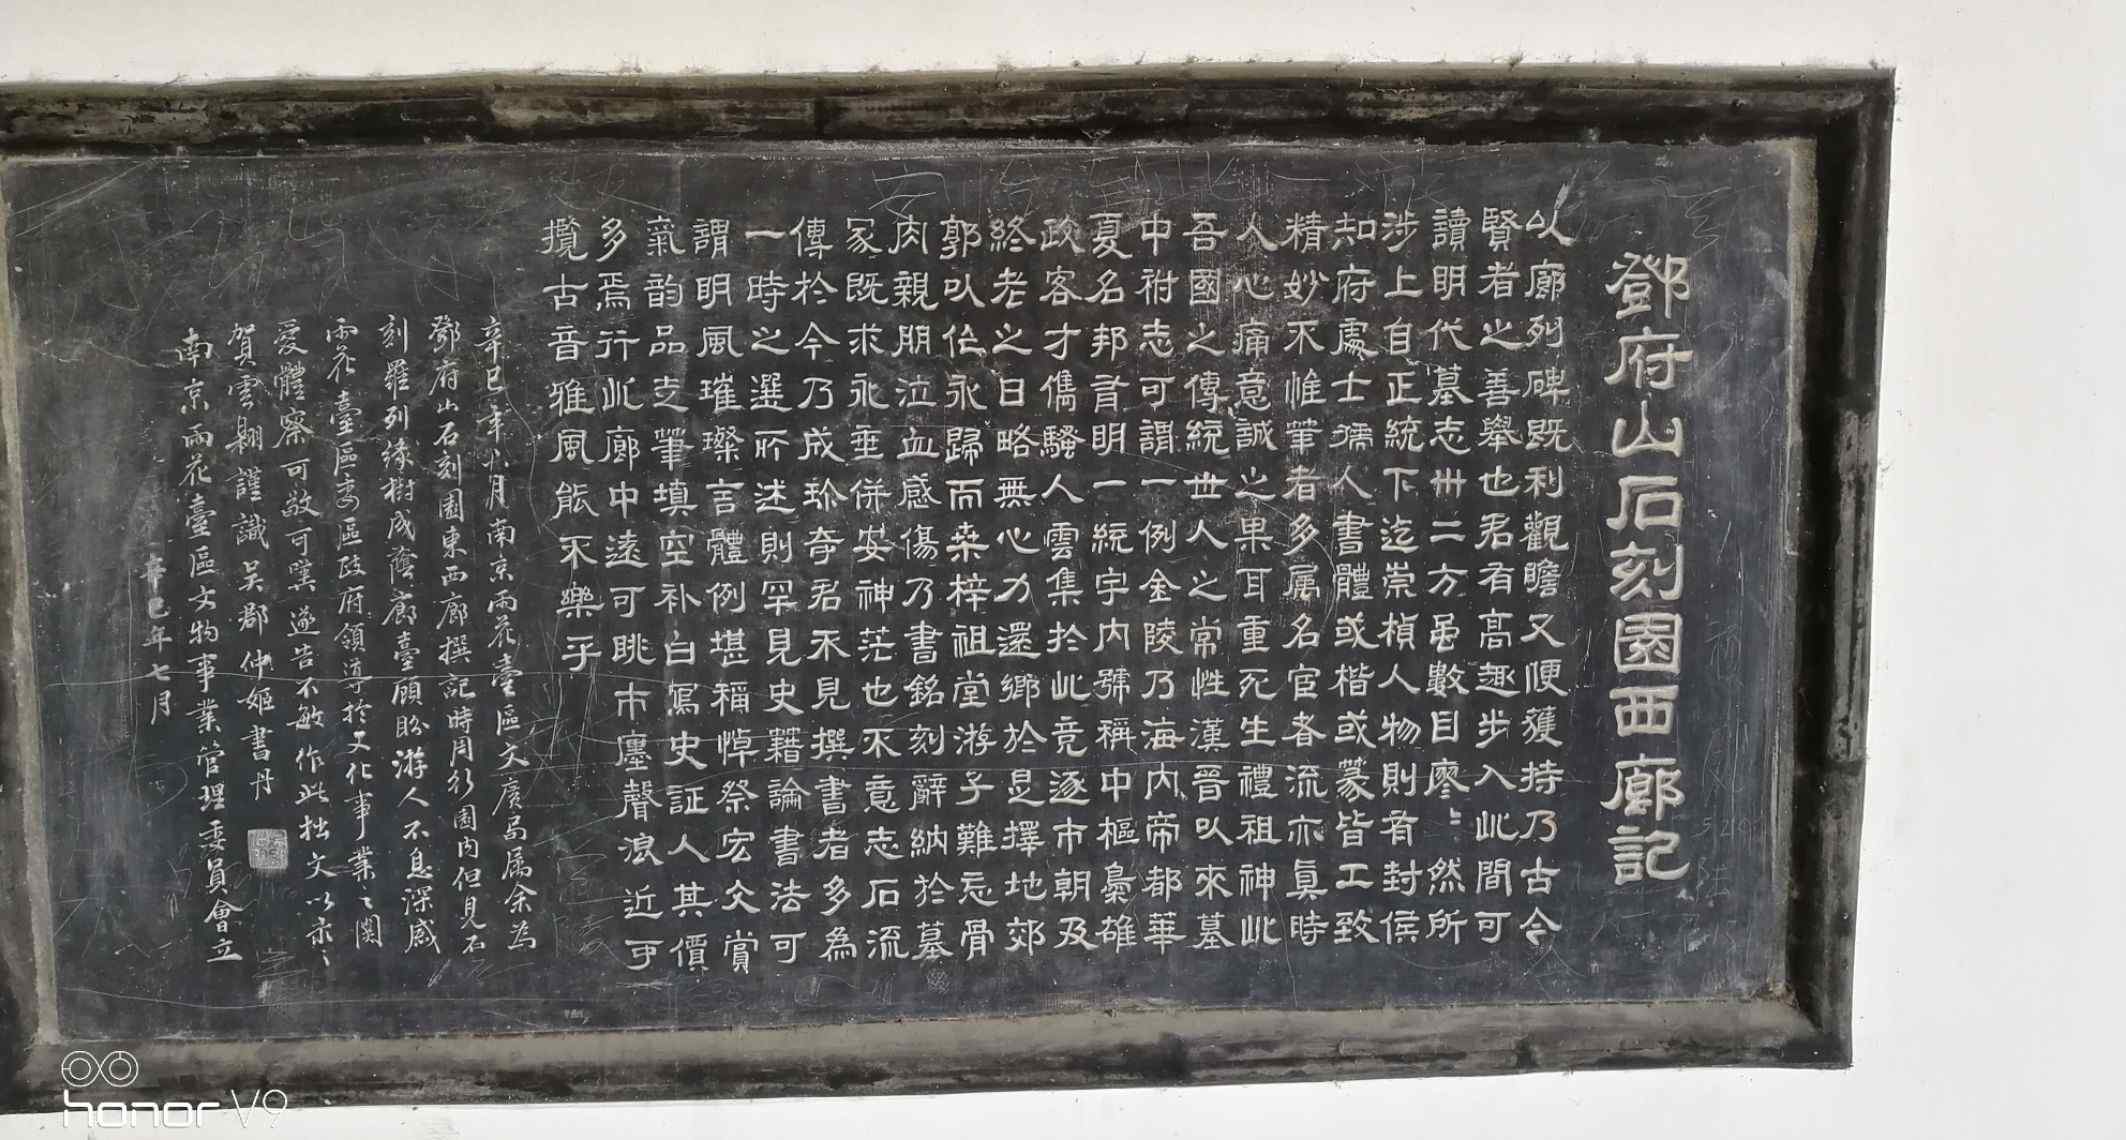 鄧府山石刻園西廊記
以廊列碑既利觀瞻又便獲持乃古今
賢者之善舉也君有高趣步入此間可
讀明代墓志卅二方虽數目廖廖然所
涉上自正統下迄崇禎人物則有封侯
知府處士孺人書體或楷或篆皆工致
精妙不惟筆者多属名宦者流亦真時
人心痛意誠之果耳重死生禮祖神此
吾國之傳統世人之常性漢晉以來墓
中祔志可謂一例金陵乃海内帝都華
夏名邦首明一統宇内號稱中樞梟雄
政客才儁騷人雲集於此竞逐市朝及
終老之日略無心力還鄉於是擇地郊
郭以佗永歸而桑梓祖堂游子難忘骨
肉親朋泣血感傷乃書銘刻辭納於墓
冢既求永垂併安神茫也不意志石流
傳於今乃成珍奇君不見撰書者多為
一時之選所述則罕見史籍論書法可
謂明風璀璨言體例堪稱悼祭宏文賞
氣韵品走筆填空补白寫史証人其價
多焉行此廊中遠可眺市廛聲浪近可
攬古音雅風能不樂乎
辛巳年六月南京雨花臺區文廣局属余為
鄧府山石刻園東西廊撰記時周行園内但見石
刻羅列緣樹成蔭廊臺顧盼游人不息深感
雨花臺區委區政府領導於文化事業之關
愛體察可敬可嘆遂告不敏作此拙文以示
賀雲翱謹識吴郡仲姬書丹
南京雨花臺區文物事業管理委員會立
辛巳年七月
honor V9